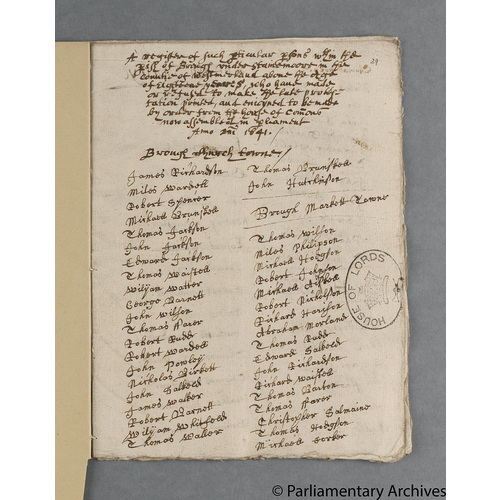 A register of such pticular psons wthin the
Pish of Brough under Stanemoore in the
countie of Westmerland above the Age
of eighteene yeares, who have made
or refused to make the late protes-
tation printed, and enioyned to be made
by order from the house of Comons
now assembled in pliament
Anno Dni 1641.
Brough Church towne
James Richardson
Miles Wardell
Robert Spencer
Michaell Brunskell
Thomas Jackson
John Jackson
Edward Jackson
Thomas Waistell
Willyam Walter
George Barnett
John Wilson
Thomas Farer
Robert Rudd
Robert Wardell
John Powley
Nicholas Birkett
John Salkeld
James Walker
Robert Barnett
Willyam Whitfeld
Thomas Walker
Thomas Brunskell
John Hutchinson
Brough Markett Towne
Thomas Wilson
Miles Philipson
Michaell Hodgson
Robert Johnson
Michaell
Robert Nicholson
Richard Harison
Abraham Morland
Thomas Rudd
Edward Salkeld
John Richardson
Richard Waistell
Thomas Barton
Thomas Farer
Christopher Salmaine
Thomas Hodgson
Michaell
HOUSE OF LORDS
© Parliamentary Archives